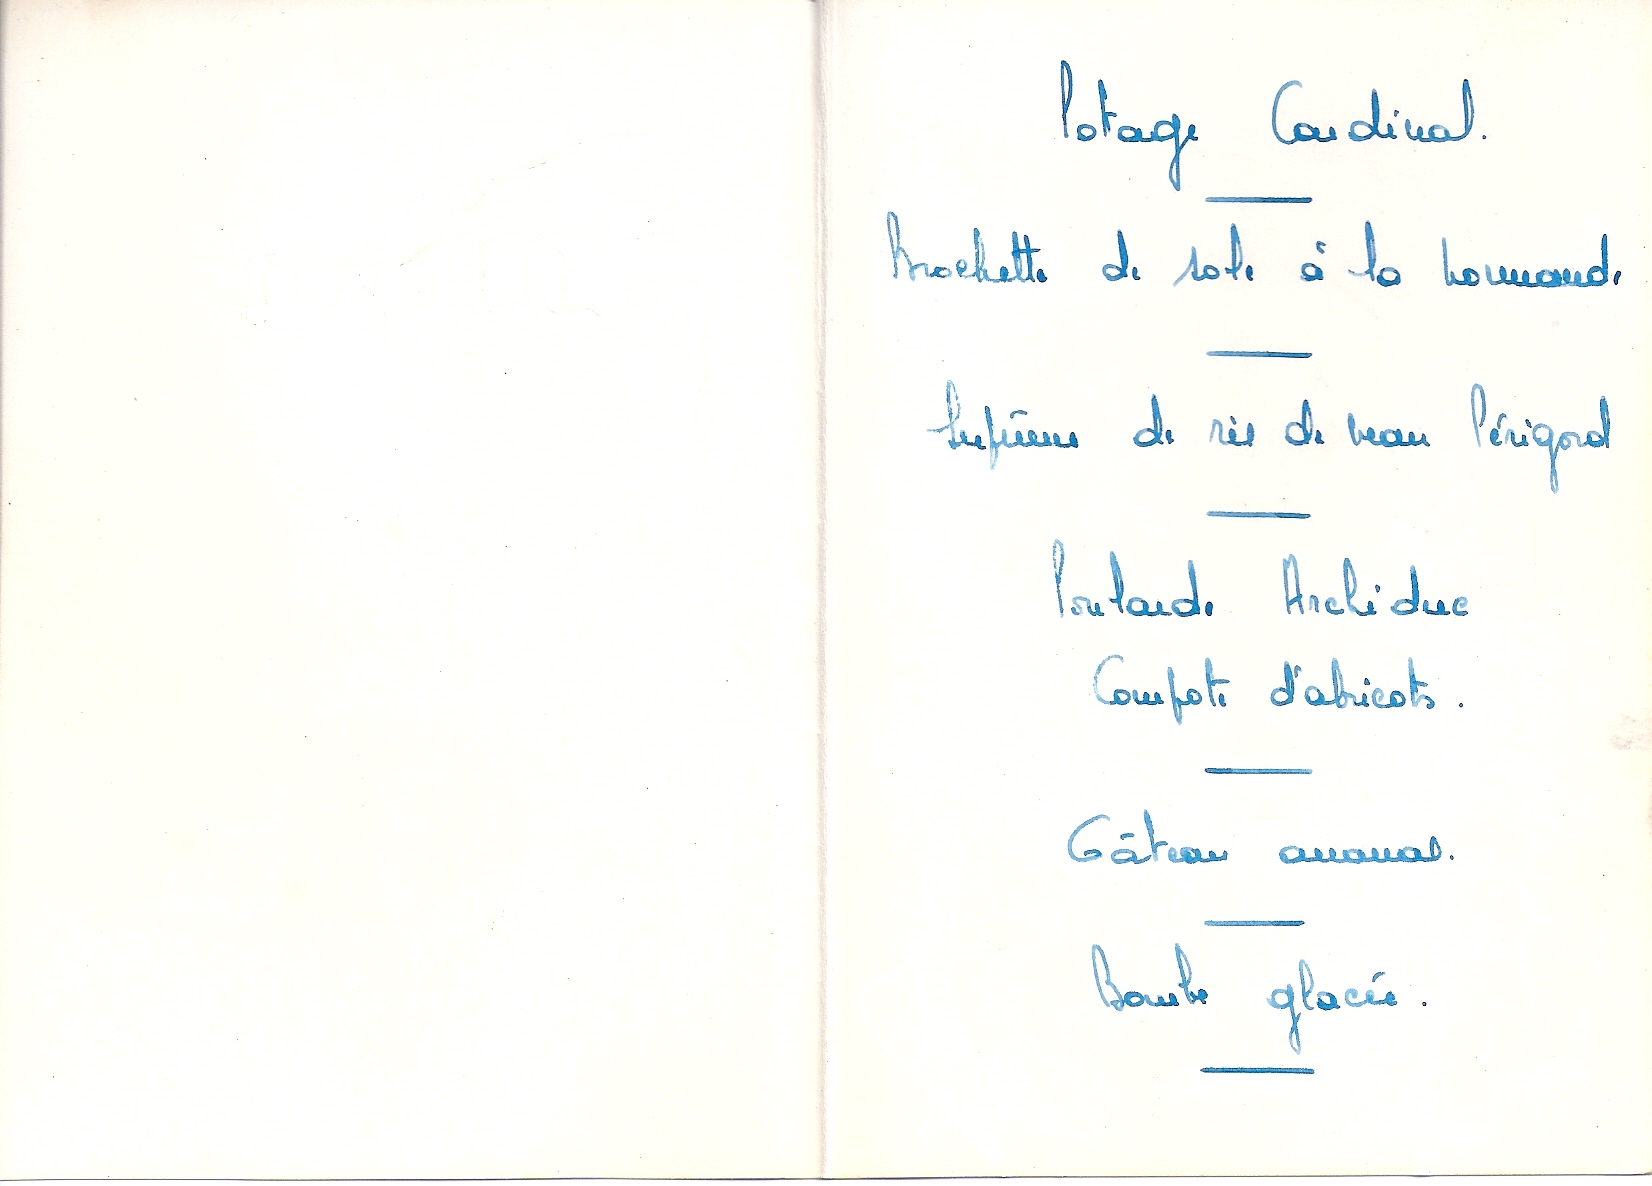 Potage Cardinal.
Brochette de sole à la normande
Suprême de ris de veau Périgord
Poularde Archiduc
Compote d'abricots.
Gâteau ananas.
Bombe glacée.